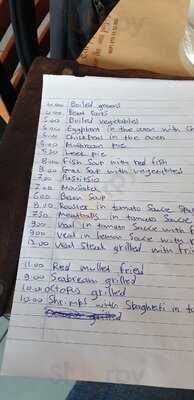 10.00 Boiled greens
4.00 Beet roots
5.00 Boiled vegetables
5.00 Eggplant in the oven with
5.00 Chickpeas in the oven
6.00 Mushroom pie
5.00 Leek pie
8.00 Fish Soup with red fish
8.00 Goat Soup with vegentables
7.00 Pastitsio
7.00 Mousaka
6.00 Bean Soup
8.00 Rooster in tomato Sauce Spa
7.50 Meatballs in tomato Sauce
9.00 Veal in tomato Sauce with f
9.00 veal in lemon Sauce with
13.00 Veal Steak grilled with fri
11.00 Red mullet fried
9.00 Seabream grilled
10.00 Octopus grilled
10.00 Shrimps with Spaghetti in to